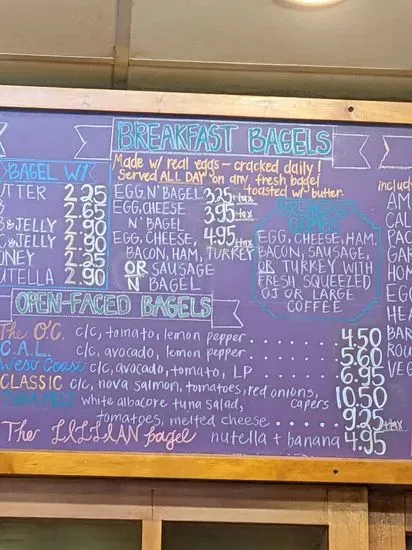 BREAKFAST BAGELS
Made w/ real eggs – cracked daily!
Served ALL DAY on any fresh bagel
toasted w/ butter.
BAGEL W/
UTTER 2.25
B 2.65
& JELLY 2.90
& JELLY 2.90
ONEY 2.25
UTELLA 2.90
EGG N' BAGEL 3.25 +tax
EGG, CHEESE 3.95 +tax
N' BAGEL
EGG, CHEESE, 4.95 +tax
BACON, HAM, TURKEY
OR SAUSAGE
N' BAGEL
BREAKFAST
COMBO
EGG, CHEESE, HAM,
BACON, SAUSAGE,
OR TURKEY WITH
FRESH SQUEEZED
OJ OR LARGE
COFFEE
includ
AM
CAL
PAC
GAR
HON
EGG
HEA
BAR
ROU
VEG
OPEN-FACED BAGELS
The O.C. c/c, tomato, lemon pepper . . . . . . . . 4.50
C.A.L. c/c, avocado, lemon pepper . . . . . . . 5.60
West Coast c/c, avocado, tomato, LP . . . . . . . . 6.95
CLASSIC c/c, nova salmon, tomatoes, red onions, capers 10.50
white albacore tuna salad,
tomatoes, melted cheese . . . . . . 9.25 +tax
The LILLIAN bagel nutella + banana 4.95